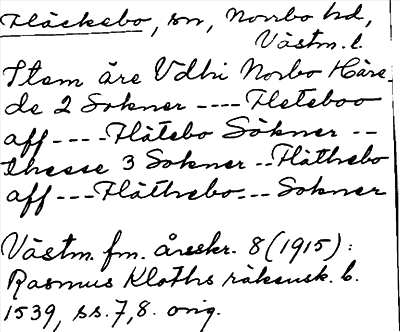 Fläckebo, sn, Norrbo hd,
Västm. l.
Item äre Vdhi Norbo Häre
de 2 Sokner ---- Fleteboo
aff ---- Flätebo Sökner --
thesse 3 Sokner -- Fläthebo
aff --- Fläthebo --- Sokner
Västm. fm. årsskr. 8 (1915):
Rasmus Kloths räkensk. b.
1539, ss. 7, 8. orig.